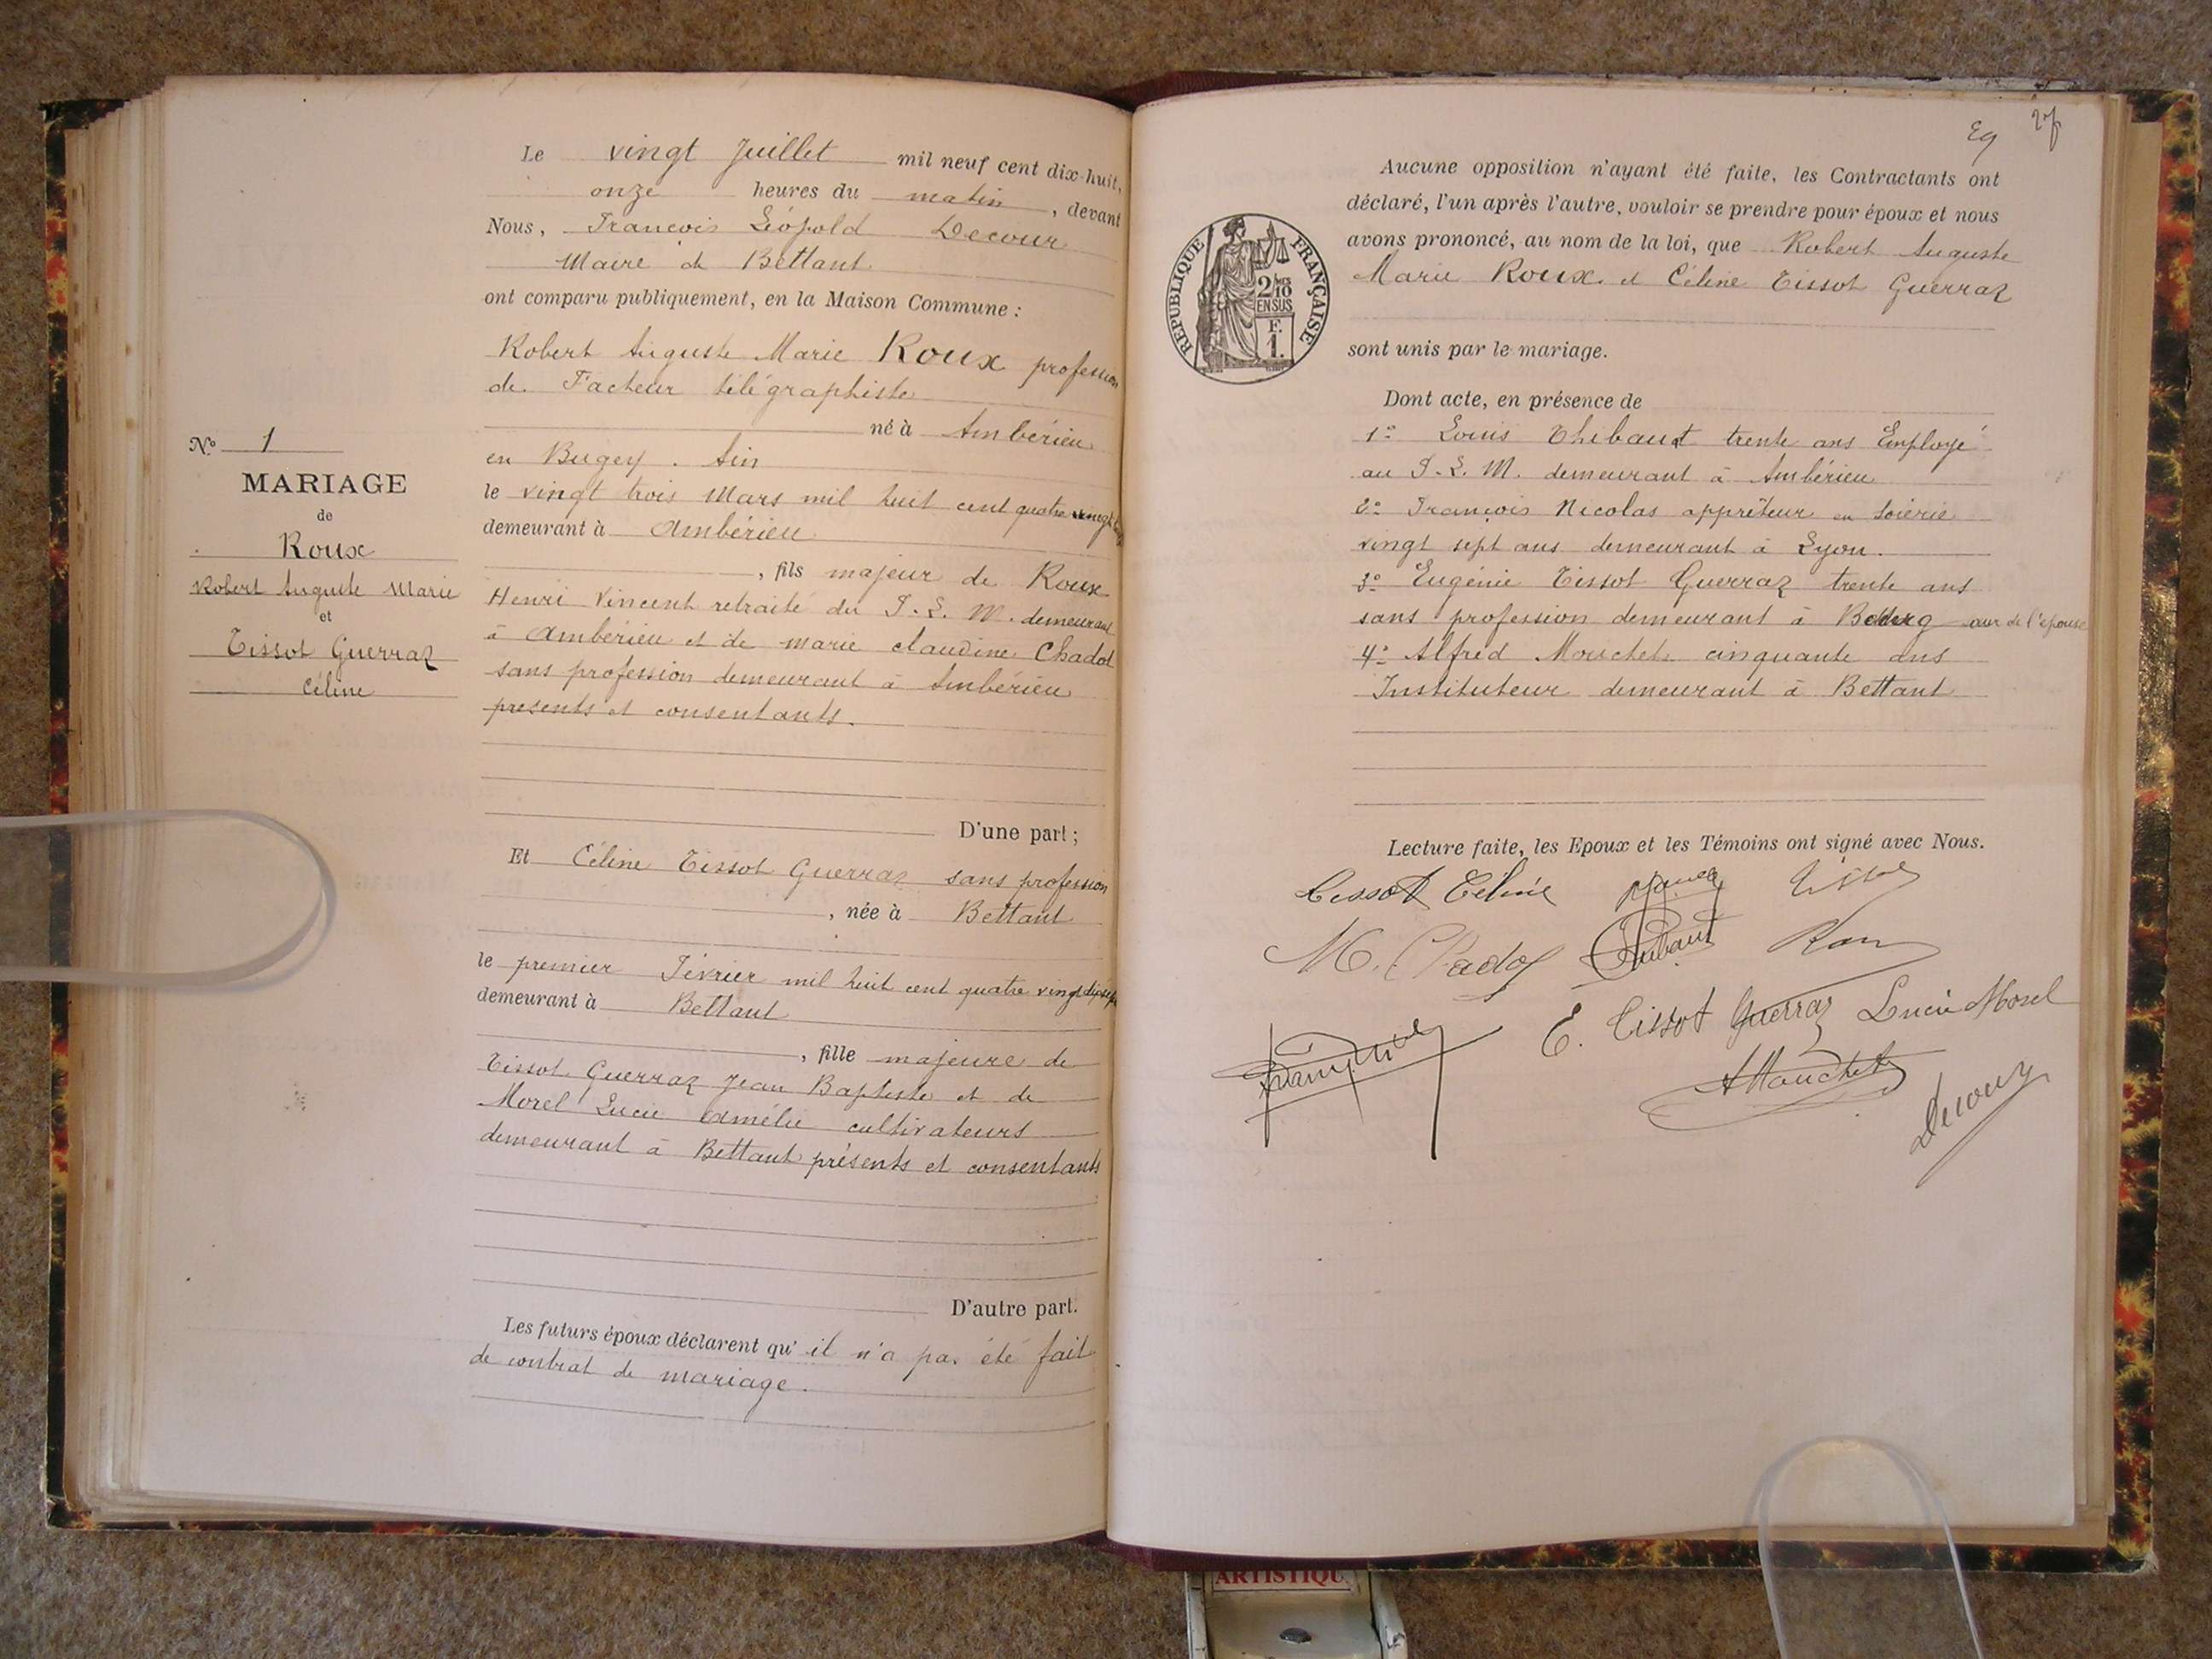 Le vingt Juillet mil neuf cent dix-huit,
onze heures du matin, devant
Nous, François Léopold Decour
Maire de Bettant
ont comparu publiquement, en la Maison Commune :
Robert Auguste Marie Roux profession
de Facteur télégraphiste
né à Ambérieu
en Bugey. Ain
le vingt trois Mars mil huit cent quatre vingt
demeurant à Ambérieu
, fils majeur de Roux
Henri Vincent retraité du P. L. M. demeurant
à Ambérieu et de marie claudine Chadol
sans profession demeurant à Ambérieu
présents et consentants.
D'une part ;
Et Céline Tissot Guerraz sans profession
, née à Bettant
le premier Février mil huit cent quatre vingt dix sept
demeurant à Bettant
, fille majeure de
Tissot Guerraz Jean Baptiste et de
Morel Lucie Amélie cultivateurs
demeurant à Bettant présents et consentants
D'autre part.
Les futurs époux déclarent qu'il n'a pas été fait
de contrat de mariage.
N° 1
MARIAGE
de
Roux
Robert Auguste Marie
et
Tissot Guerraz
Céline
29
27
Aucune opposition n'ayant été faite, les Contractants ont
déclaré, l'un après l'autre, vouloir se prendre pour époux et nous
avons prononcé, au nom de la loi, que Robert Auguste
Marie Roux et Céline Tissot Guerraz
sont unis par le mariage.
RÉPUBLIQUE FRANÇAISE
2/10
EN SUS
F.
1.
Dont acte, en présence de
1° Louis Thibaut trente ans Employé
au P. L. M. demeurant à Ambérieu
2° François Nicolas apprêteur en soierie
vingt sept ans demeurant à Lyon.
3° Eugénie Tissot Guerraz trente ans
sans profession demeurant à Bourg sœur de l'épouse
4° Alfred Mouchet cinquante ans
Instituteur demeurant à Bettant
Lecture faite, les Epoux et les Témoins ont signé avec Nous.
Tissot Céline Tissot
M. Chadol Thibaut Roux
E. Tissot Guerraz Lucie Morel
AMouchet
Decour
ARTISTIQU